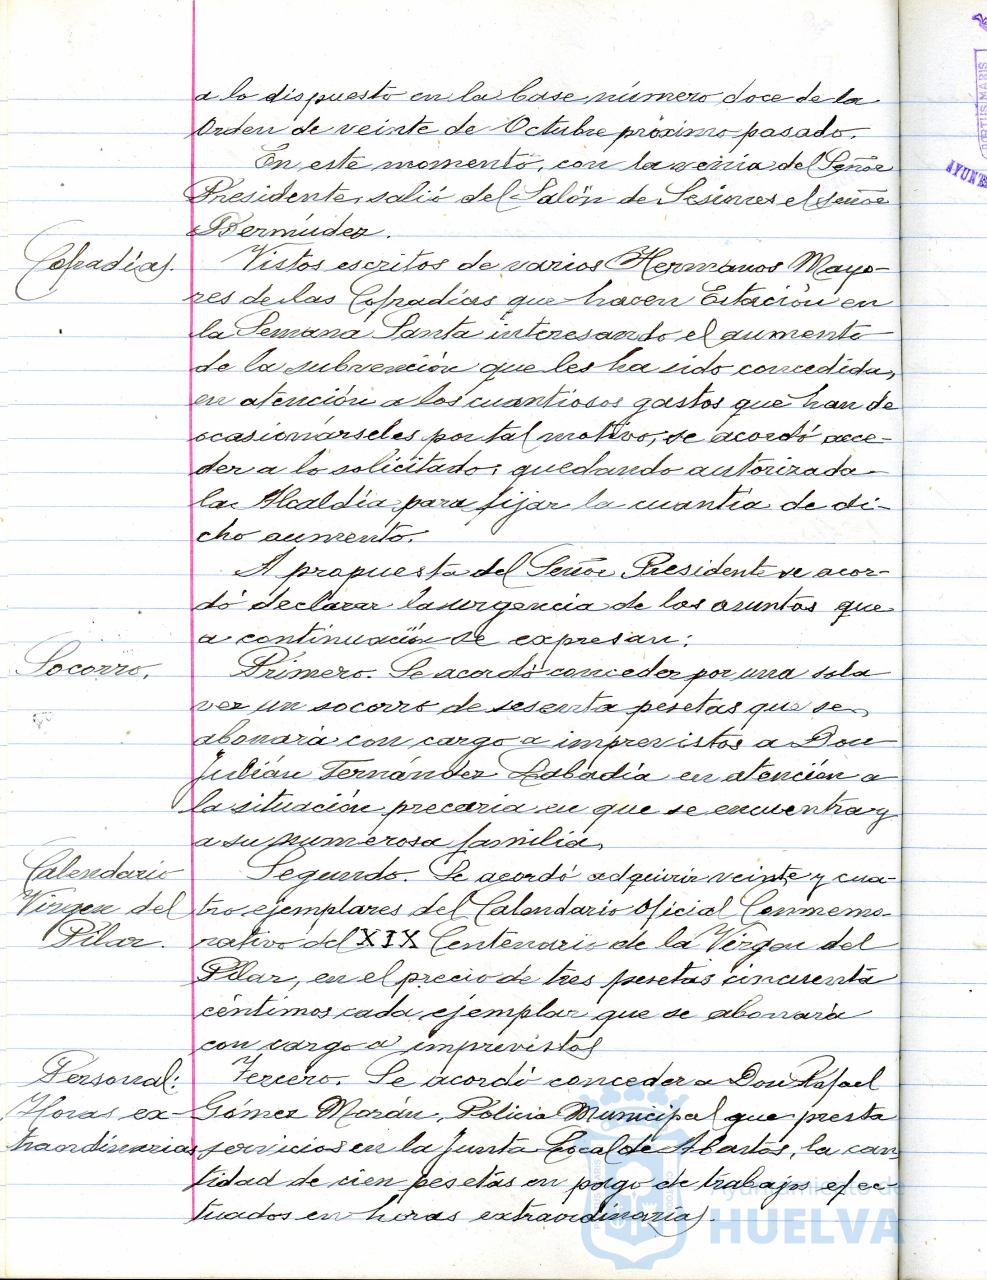 a lo dispuesto en la base número doce de la
Orden de veinte de Octubre próximo pasado.
En este momento, con la venia del Señor
Presidente, salió del Salón de Sesiones el señor
Bermúdez.
Cofradías.
Vistos escritos de varios Hermanos Mayo-
res de las Cofradías que hacen Estación en
la Semana Santa interesando el aumento
de la subvención que les ha sido concedida,
en atención a los cuantiosos gastos que han de
ocasionárseles por tal motivo, se acordó acce-
der a lo solicitado, quedando autorizada
la Alcaldía para fijar la cuantía de di-
cho aumento.
A propuesta del Señor Presidente se acor-
dó declarar la urgencia de los asuntos que
a continuación se expresan:
Socorro.
Primero. Se acordó conceder por una sola
vez un socorro de sesenta pesetas que se
abonará con cargo a imprevistos a Don
Julián Fernández Labadía en atención a
la situación precaria en que se encuentra y
a su numerosa familia.
Calendario
Virgen del
Pilar.
Segundo. Se acordó adquirir veinte y cua-
tro ejemplares del Calendario Oficial Conmemo-
rativo del XIX Centenario de la Virgen del
Pilar, en el precio de tres pesetas cincuenta
céntimos cada ejemplar que se abonará
con cargo a imprevistos
Personal:
Horas ex-
traordinarias
Tercero. Se acordó conceder a Don Rafael
Gómez Marán, Policía Municipal que presta
servicios en la Junta Local de Abastos, la can-
tidad de cien pesetas en pago de trabajos efec-
tuados en horas extraordinarias.
PORTUS MARIS
Ayuntamiento de
HUELVA